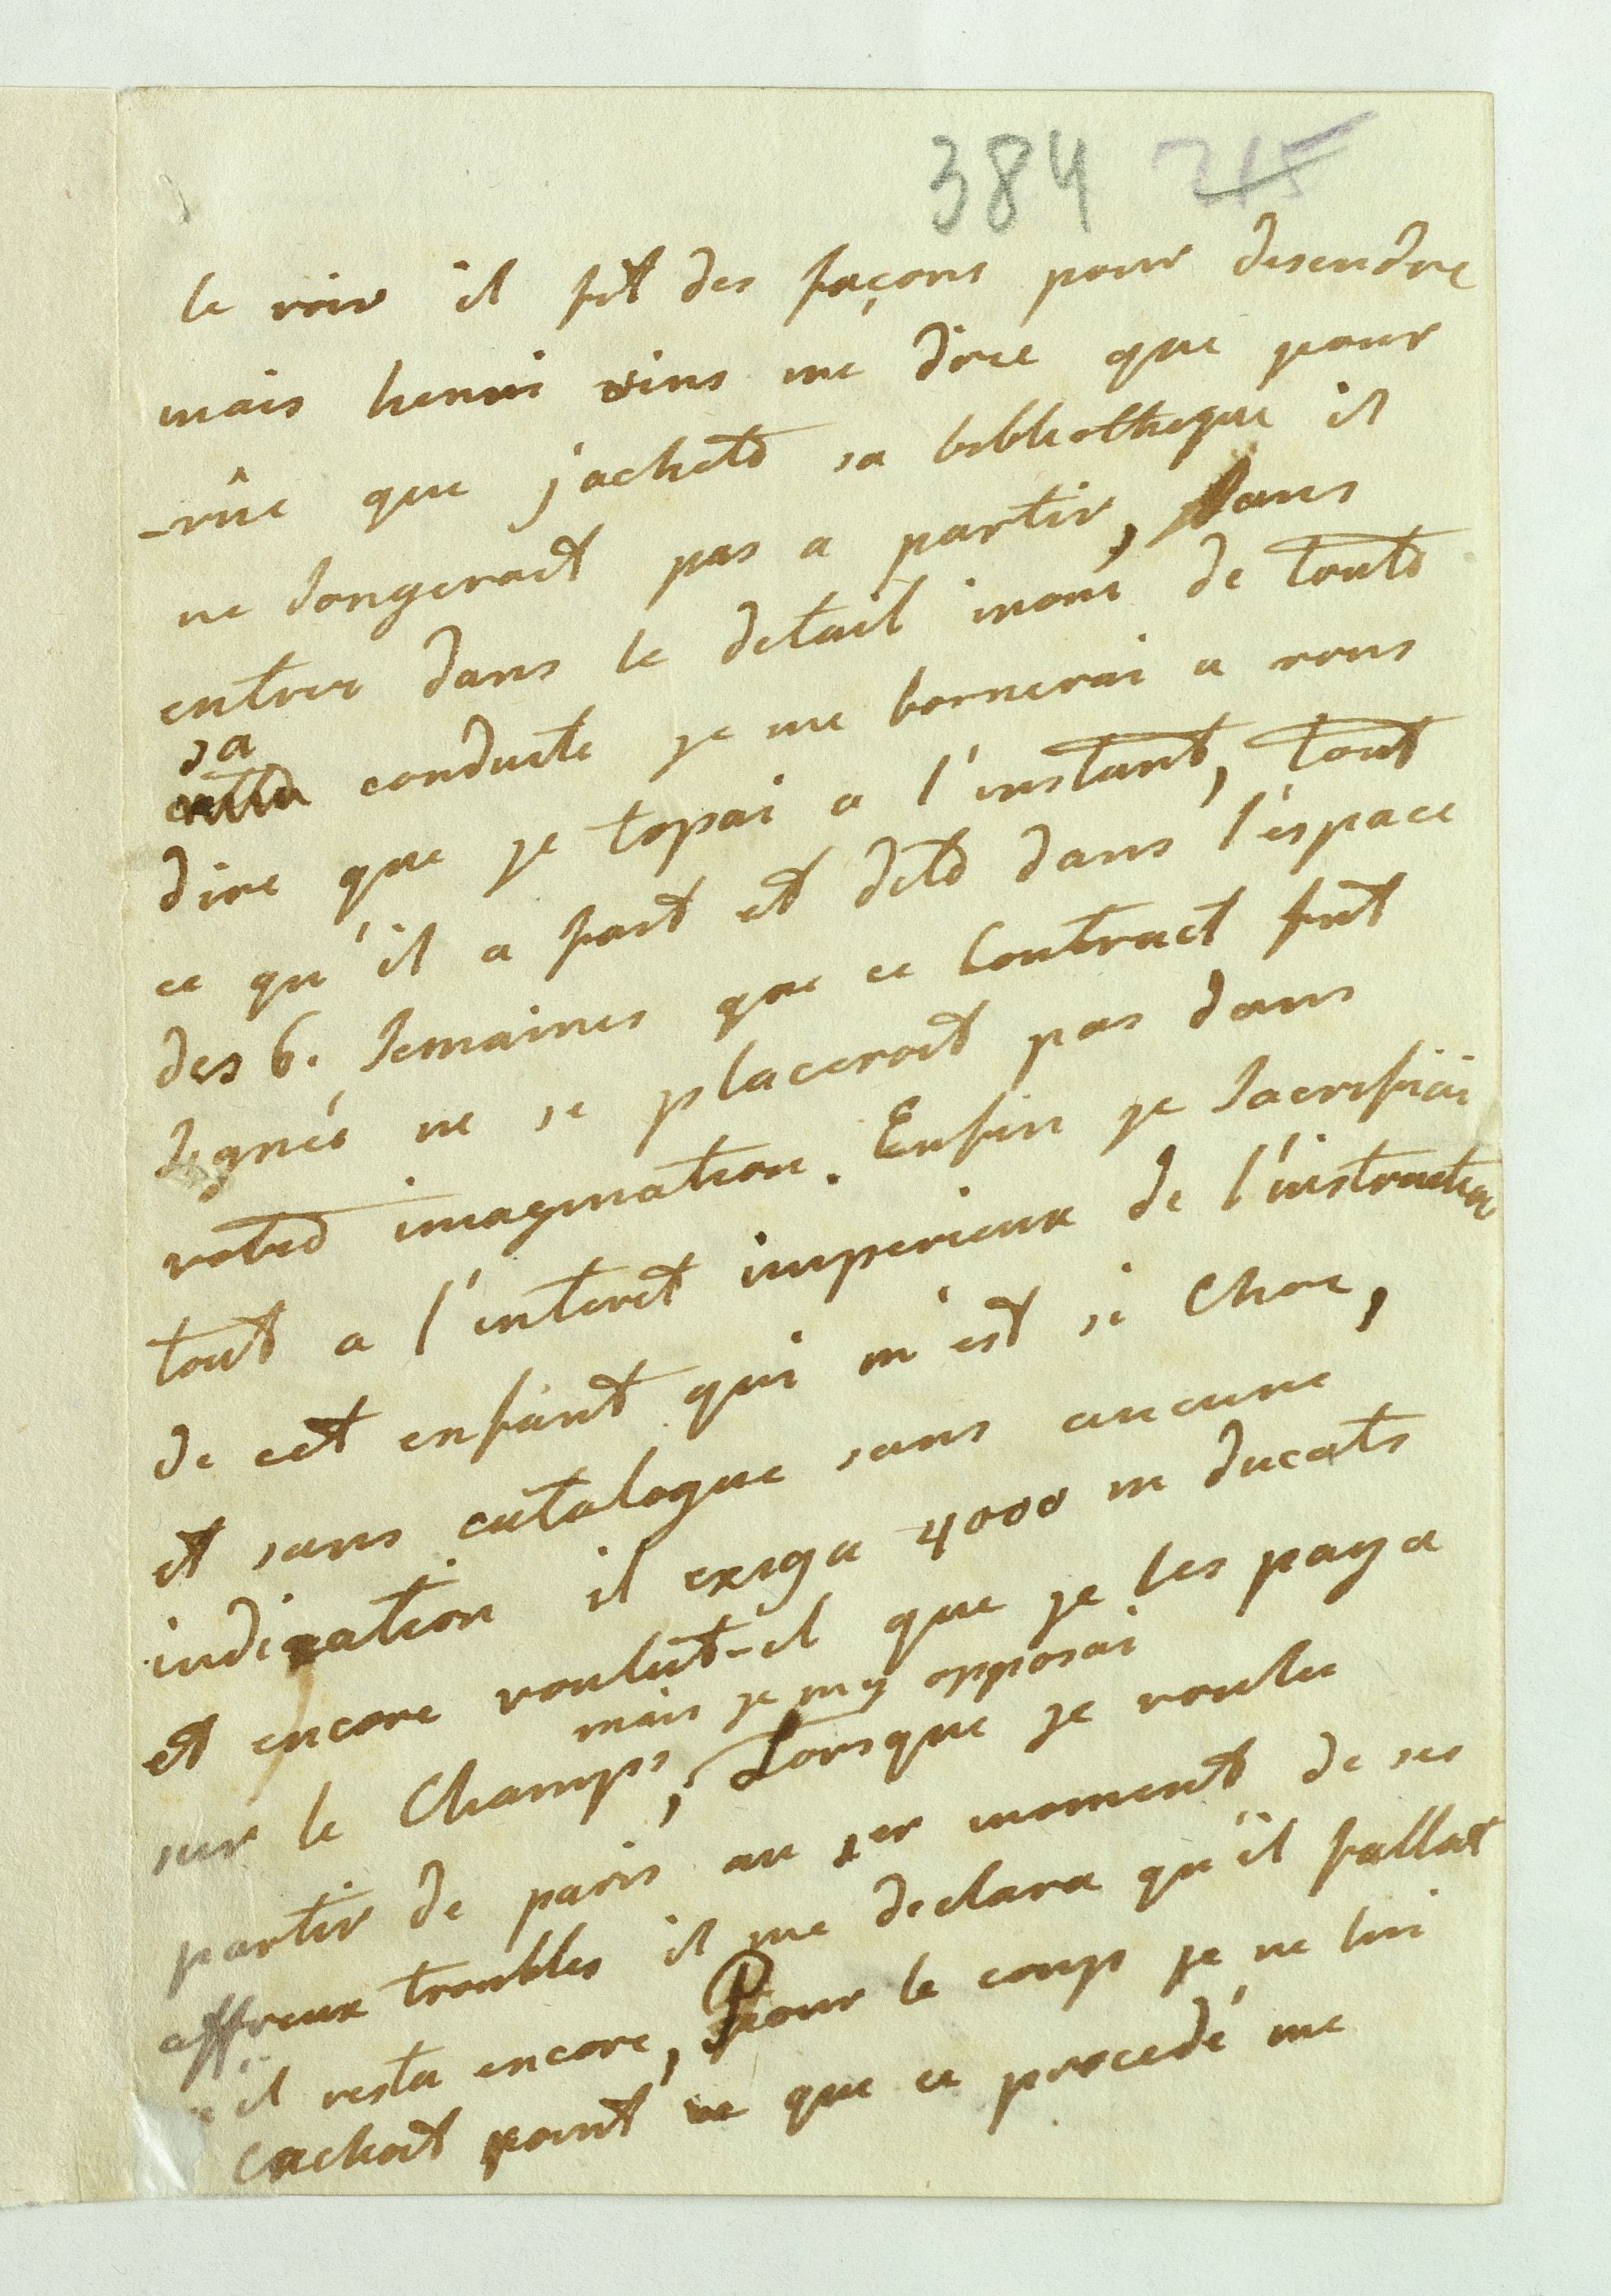 384 215
le voir il fit des façons pour desendre
mais henri vins me dire que pour
-vûe que j'achete sa bibliotheque il
ne songerait pas a partir, sans
entrer dans le detail inoui de toute
sa
cette conduite je me bornerai a vous
dire que je topai a l'instant, tout
ce qu'il a fait et dite dans l'espace
des 6. semaines que ce Contract fut
signée ne se placeroit pas dans
votre imagination. Enfin je sacrifiai
tout a l'interet imperieux de l'instruction
de cet enfant qui m'est si Chere,
et sans catalogue sans aucune
indication il exiga 4000 m ducats
et encore voulut-il que je les paya
mais je m'y opposai
sur le Champs, Lorsque je voulu
partir de paris au 1er moment de ses
affreux troubles il me declara qu'il fallat
qu'il resta encore, Pour le coup je ne lui
cachoit point que ce procedé me